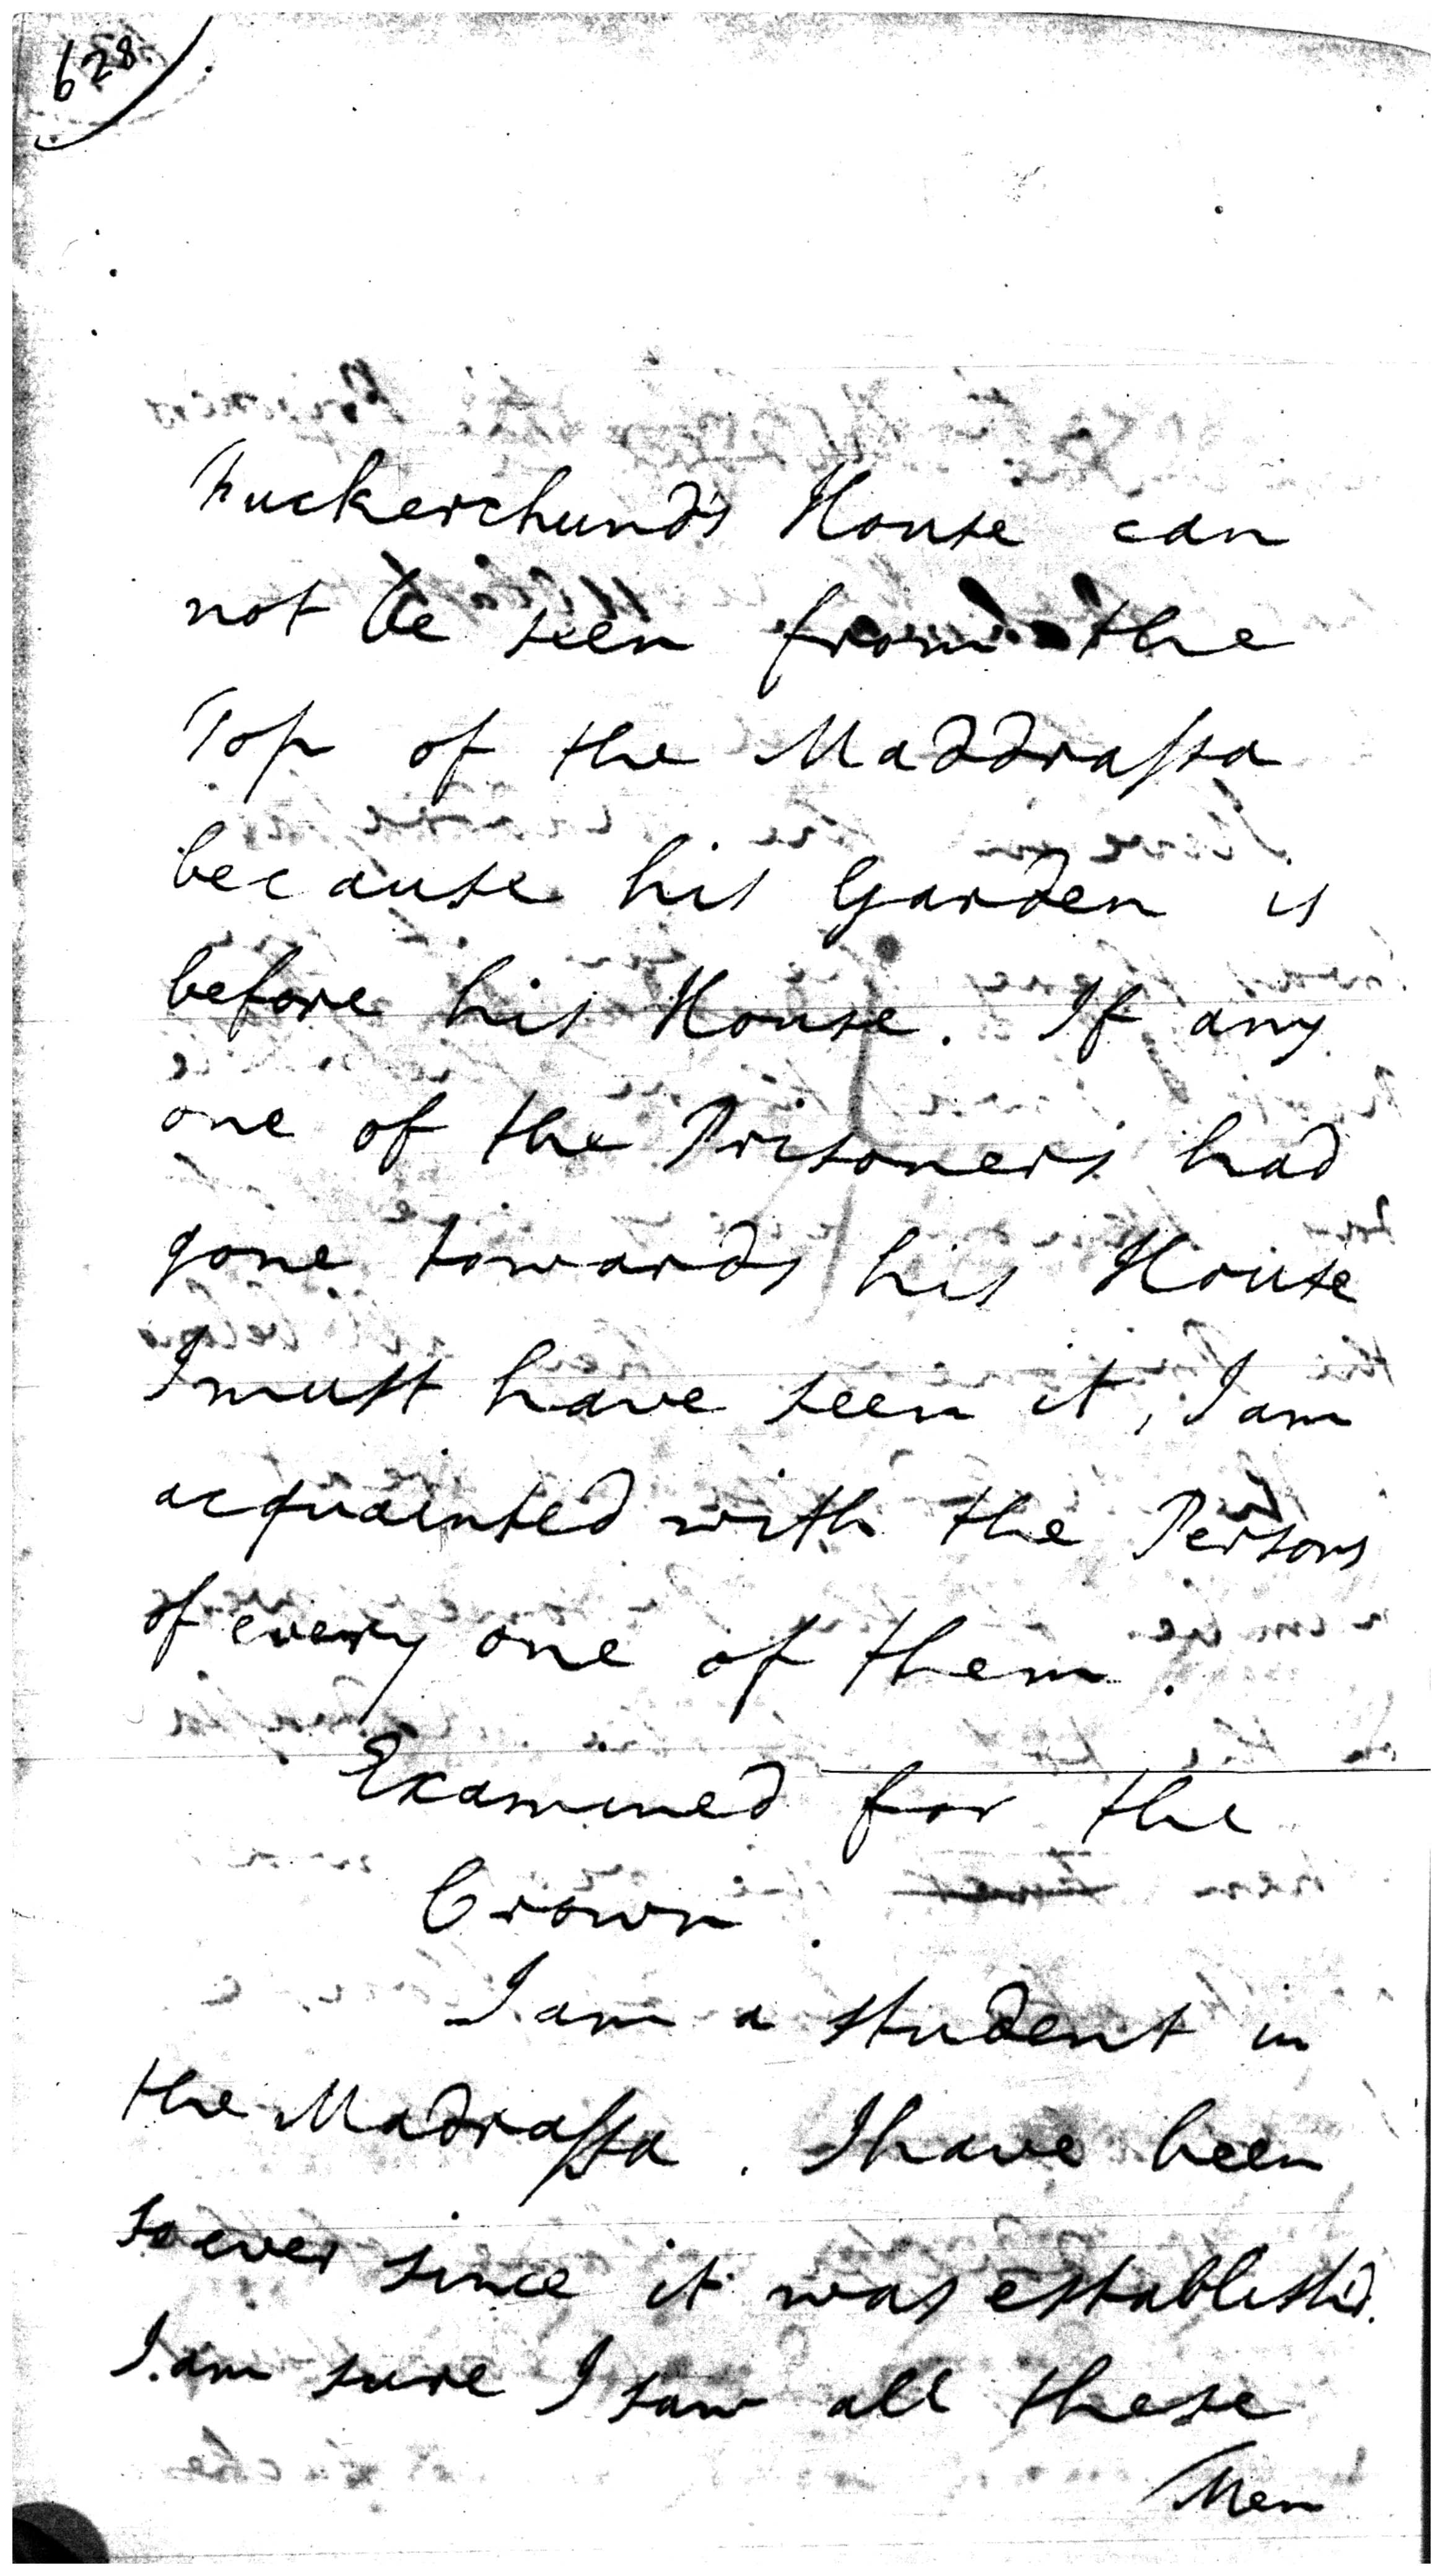 628
Fuckerchund's House can
not be seen from the
Top of the Maddrassa
because his Garden is
before his House. If any
one of the Prisoners had
gone towards his House
I must have seen it, I am
acquainted with the Persons
of every one of them.
Examined for the
Crown.
I am a student in
the Madrassa. I have been
so ever since it was establish'd.
I am sure I saw all these
Men